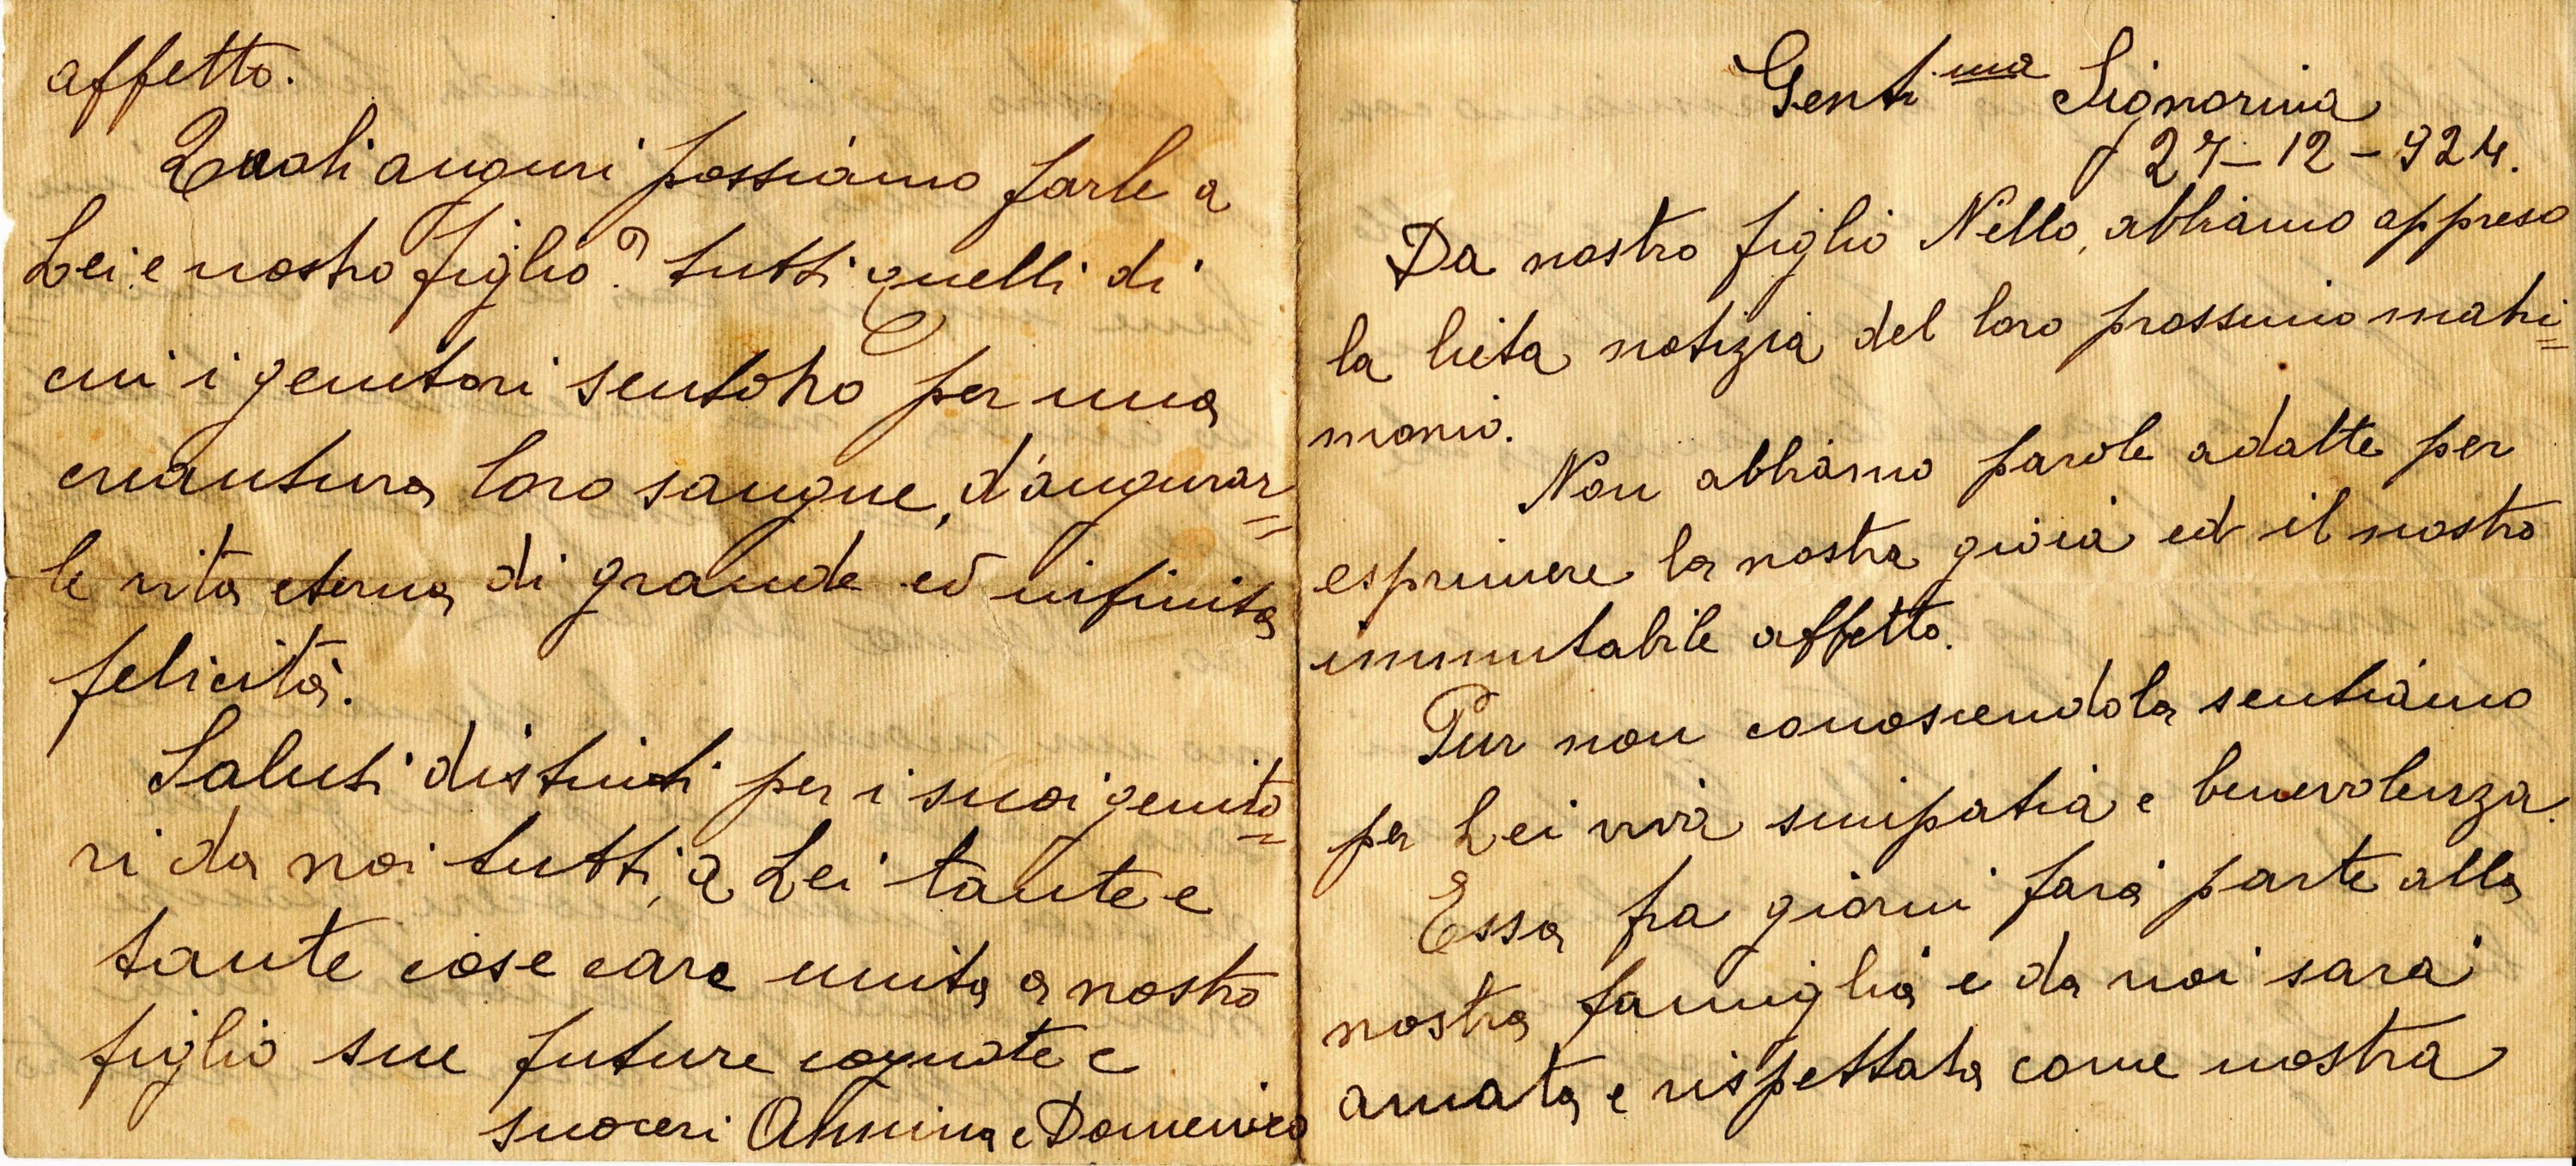 Gent.ma Signorina
27-12-924.
Da nostro figlio Nello, abbiamo appreso
la lieta notizia del loro prossimo matri=
monio.
Non abbiamo parole adatte per
esprimere la nostra gioia ed il nostro
immutabile affetto.
Pur non conoscendola sentiamo
per Lei viva simpatia e benevolenza.
Essa fra giorni farà parte alla
nostra famiglia e da noi sarà
amata e rispettata come nostra
affetto.
Quali auguri possiamo farle a
Lei e nostro figlio? tutti quelli di
cui i genitori sentono per una
creautura loro sangue, d'augurar=
le vita eterna di grande ed infinita
felicità.
Saluti distinti per i suoi genito=
ri da noi tutti, a Lei tante e
tante cose care unita a nostro
figlio sue future cognate e
suoceri Annina e Domenico